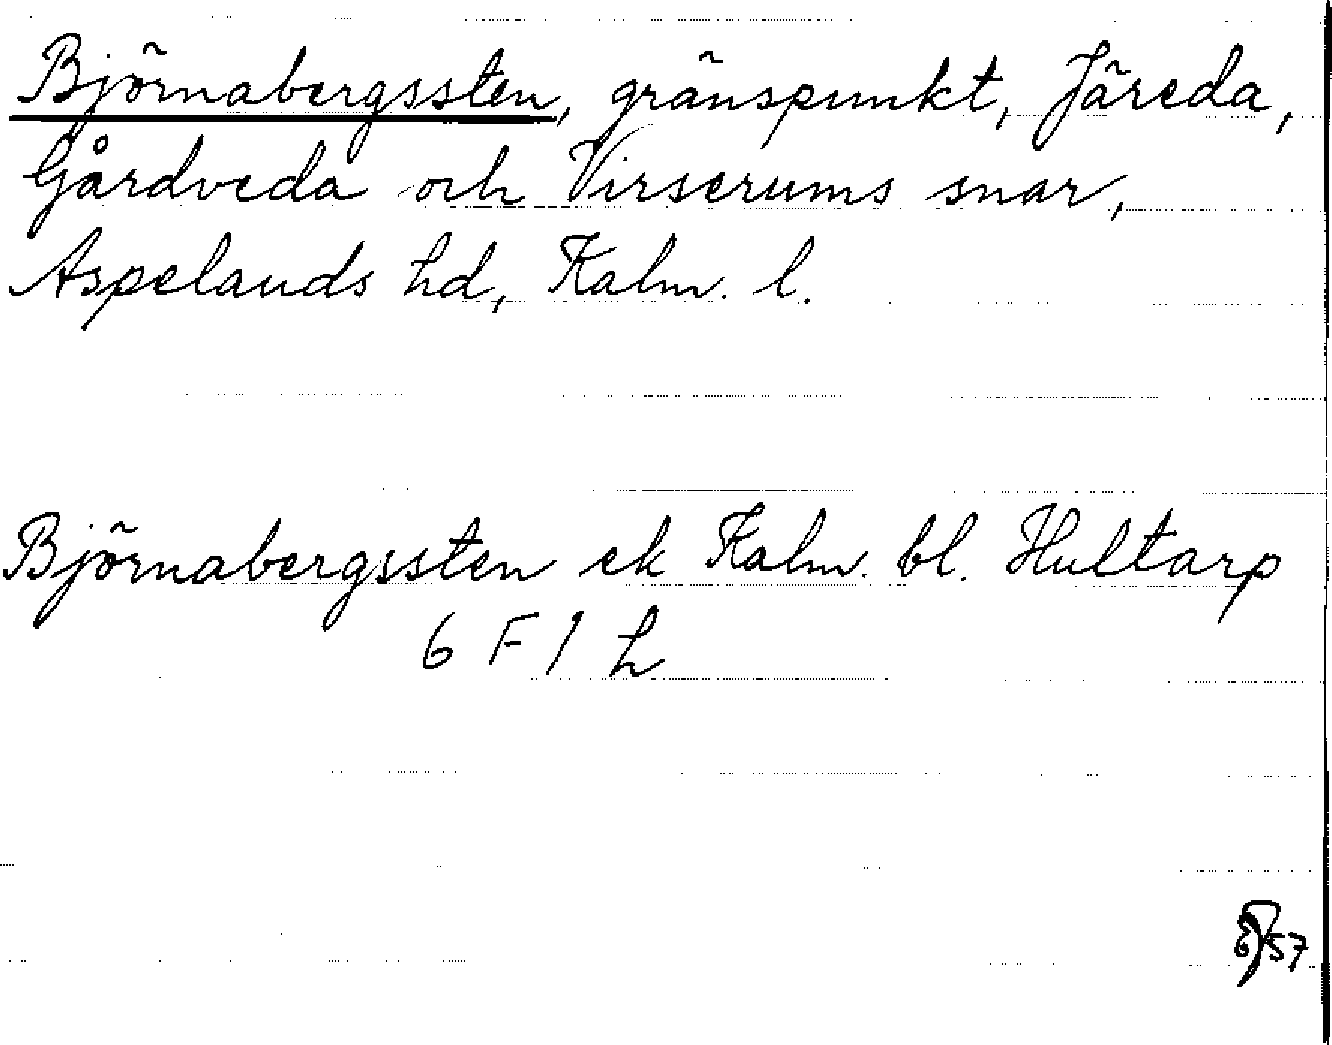 Björnabergssten, gränspunkt, Järeda,
Gårdveda och Virserums snar,
Aspelands hd, Kalm. l.
Björnabergssten ek Kalm. bl. Hultarp
6 F 1 h
57